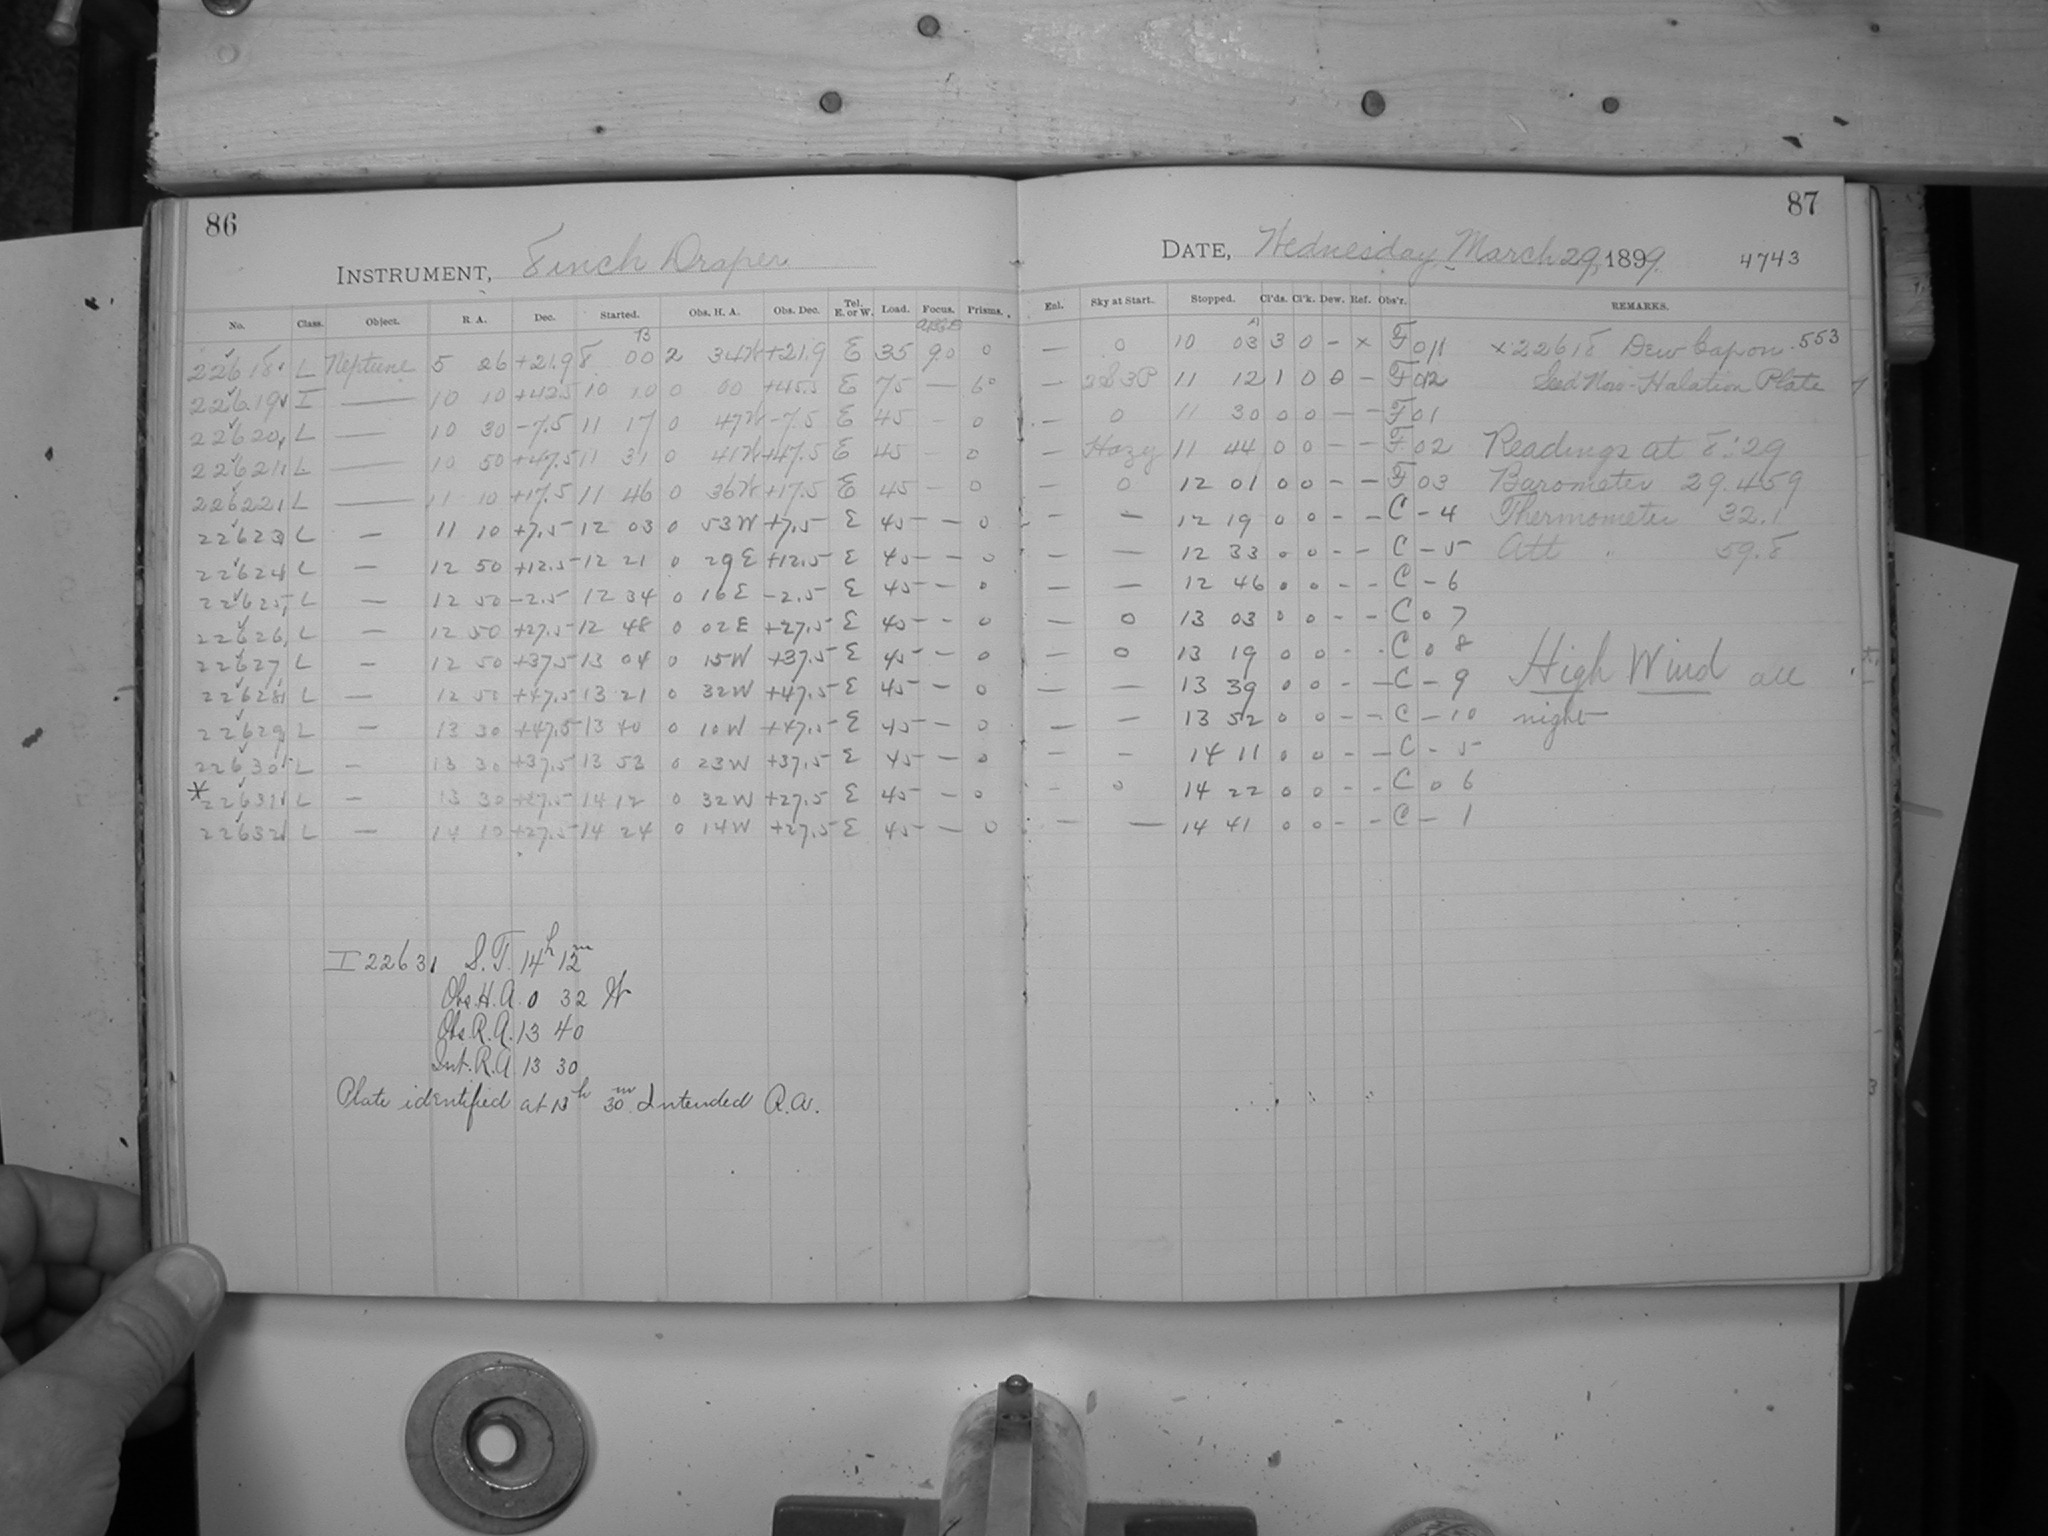 86
INSTRUMENT, 8 inch Draper
No. Class. Object. R. A. Dec. Started. Obs. H. A. Obs. Dec. Tel. E. or W. Load. Focus. Prisms.
22618 L Neptune 5 26 +21.9 8 00 2 34W +21.9 E 35 90 0
22619 I — 10 10 +42.5 10 10 0 00 E 75 — 60
22620 L — 10 30 -7.5 11 17 0 47W -7.5 E 45 — 0
22621 L — 10 50 +47.5 11 31 0 41W +47.5 E 45 — 0
22622 L — 11 10 +17.5 11 46 0 36W +17.5 E 45 — 0
22623 L — 11 10 +7.5 12 03 0 53W +7.5 E 45 — 0
22624 L — 12 50 +12.5 12 21 0 29E +12.5 E 45 — 0
22625 L — 12 50 -2.5 12 34 0 16E -2.5 E 45 — 0
22626 L — 12 50 +27.5 12 48 0 02E +27.5 E 45 — 0
22627 L — 12 50 +37.5 13 04 0 15W +37.5 E 45 — 0
22628 L — 12 50 +47.5 13 21 0 32W +47.5 E 45 — 0
22629 L — 13 30 +47.5 13 40 0 10W +47.5 E 45 — 0
22630 L — 13 30 +37.5 13 53 0 23W +37.5 E 45 — 0
* 22631 L — 13 30 +27.5 14 12 0 32W +27.5 E 45 — 0
22632 L — 14 10 +27.5 14 24 0 14W +27.5 E 45 — 0
I 22631 S.T. 14h 12m
Obs. H.A. 0 32 W
Obs. R.A. 13 40
Int. R.A. 13 30
Plate identified at 13h 30m Intended R.A.
87
DATE, Wednesday, March 29, 1899. 4743
Enl. Sky at Start. Stopped. Cl'ds. Cl'k. Dew. Ref. Obs'r. REMARKS.
— 0 10 03 3 0 - x F 011 x 22618 Dew Cap on .553
— 2S3P 11 12 1 0 0 — F 012 Seed Non-Halation Plate
— 0 11 30 0 0 — — F 01
— Hazy 11 44 0 0 — — F 02 Readings at 8:29
— 0 12 01 0 0 — — F 03 Barometer 29.459
— — 12 19 0 0 — — C — 4 Thermometer 32.1
— — 12 33 0 0 — — C — 5 Att " 59.8
— — 12 46 0 0 — — C — 6
— 0 13 03 0 0 — — C 0 7
— 0 13 19 0 0 — — C 0 8
— — 13 39 0 0 — — C — 9 High Wind all
— — 13 52 0 0 — — C — 10 night
— — 14 11 0 0 — — C — 5
— 0 14 22 0 0 — — C 0 6
— — 14 41 0 0 — — C — 1